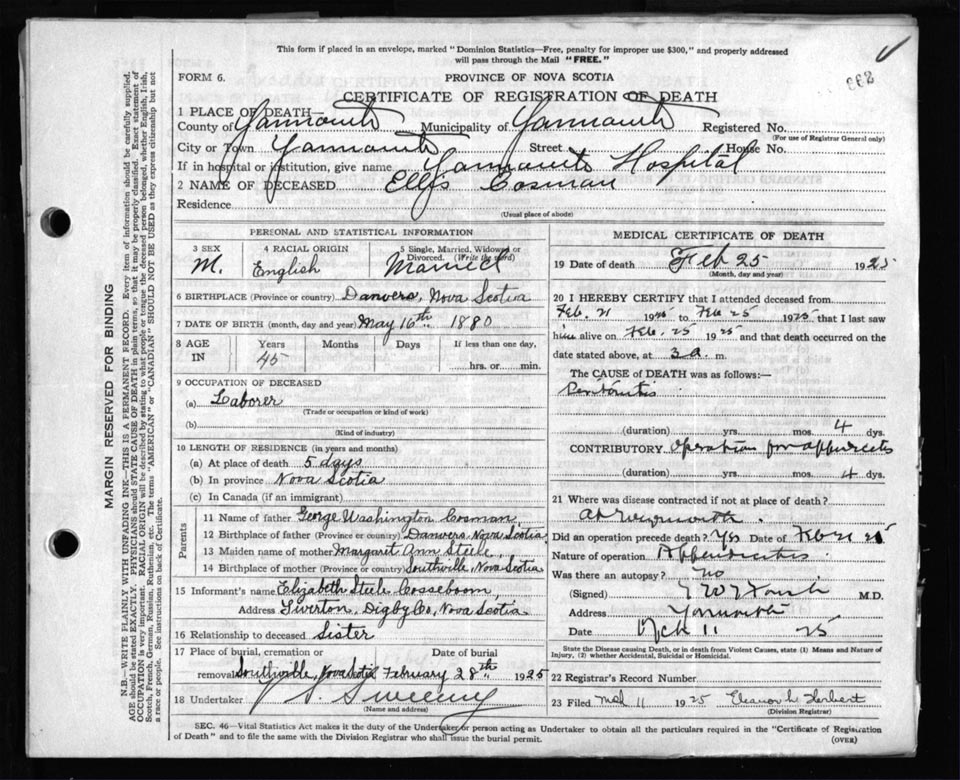 This form if placed in an envelope, marked "Dominion Statistics—Free, penalty for improper use $300," and properly addressed
will pass through the Mail "FREE."
FORM 6.
PROVINCE OF NOVA SCOTIA
332
CERTIFICATE OF REGISTRATION OF DEATH
1 PLACE OF DEATH—
County of Yarmouth Municipality of Yarmouth Registered No.
(For use of Registrar General only)
City or Town Yarmouth Street House No.
If in hospital or institution, give name Yarmouth Hospital
2 NAME OF DECEASED Ellis Cosman
Residence
(Usual place of abode)
PERSONAL AND STATISTICAL INFORMATION
3 SEX 4 RACIAL ORIGIN 5 Single, Married, Widowed or
Divorced. (Write the word)
M. English Married
6 BIRTHPLACE (Province or country) Danvers, Nova Scotia
7 DATE OF BIRTH (month, day and year) May 16th 1880
8 AGE IN Years Months Days If less than one day,
45 hrs. or min.
9 OCCUPATION OF DECEASED
(a) Laborer
(Trade or occupation or kind of work)
(b)
(Kind of industry)
10 LENGTH OF RESIDENCE (in years and months)
(a) At place of death 5 days
(b) In province Nova Scotia
(c) In Canada (if an immigrant)
Parents
11 Name of father George Washington Cosman
12 Birthplace of father (Province or country) Danvers, Nova Scotia
13 Maiden name of mother Margaret Ann Steele,
14 Birthplace of mother (Province or country) Southville, Nova Scotia
15 Informant's name Elizabeth Steele Cosseboom,
Address Tiverton, Digby Co, Nova Scotia
16 Relationship to deceased Sister
17 Place of burial, cremation or Date of burial
removal Southville, Nova Scotia February 28th 1925
18 Undertaker Sweeney
(Name and address)
MEDICAL CERTIFICATE OF DEATH
19 Date of death Feb 25 1925
(Month, day and year)
20 I HEREBY CERTIFY that I attended deceased from
Feb. 21 1925 to Feb 25 1925 that I last saw
him alive on Feb. 25 1925 and that death occurred on the
date stated above, at 3 a. m.
The CAUSE of DEATH was as follows:—
Peritonitis
(duration) yrs. mos. 4 dys.
CONTRIBUTORY Operation for appendicitis
(duration) yrs. mos. 4 dys.
21 Where was disease contracted if not at place of death?
At Weymouth.
Did an operation precede death? Yes Date of Feb 21 25
Nature of operation Appendicitis.
Was there an autopsy? no
(Signed) M.D.
Address Yarmouth
Date Mch 11 25
State the Disease causing Death, or in death from Violent Causes, state (1) Means and Nature of
Injury, (2) whether Accidental, Suicidal or Homicidal.
22 Registrar's Record Number
23 Filed Mch 11 1925 Eleanor L Herbert
(Division Registrar)
SEC. 46—Vital Statistics Act makes it the duty of the Undertaker or person acting as Undertaker to obtain all the particulars required in the "Certificate of Registration
of Death" and to file the same with the Division Registrar who shall issue the burial permit.
(OVER)
MARGIN RESERVED FOR BINDING
N.B.—WRITE PLAINLY WITH UNFADING INK—THIS IS A PERMANENT RECORD. Every item of information should be carefully supplied.
AGE should be stated EXACTLY. PHYSICIANS should STATE CAUSE OF DEATH in plain terms, so that it may be properly classified. Exact statement of
OCCUPATION is very important. RACIAL ORIGIN will be described by stating to what people or tongue the deceased person belonged, whether English, Irish,
Scotch, French, German, Russian, Ruthenian, etc. The terms "AMERICAN" or "CANADIAN" SHOULD NOT BE USED as they express citizenship but not
a race or people. See instructions on back of Certificate.